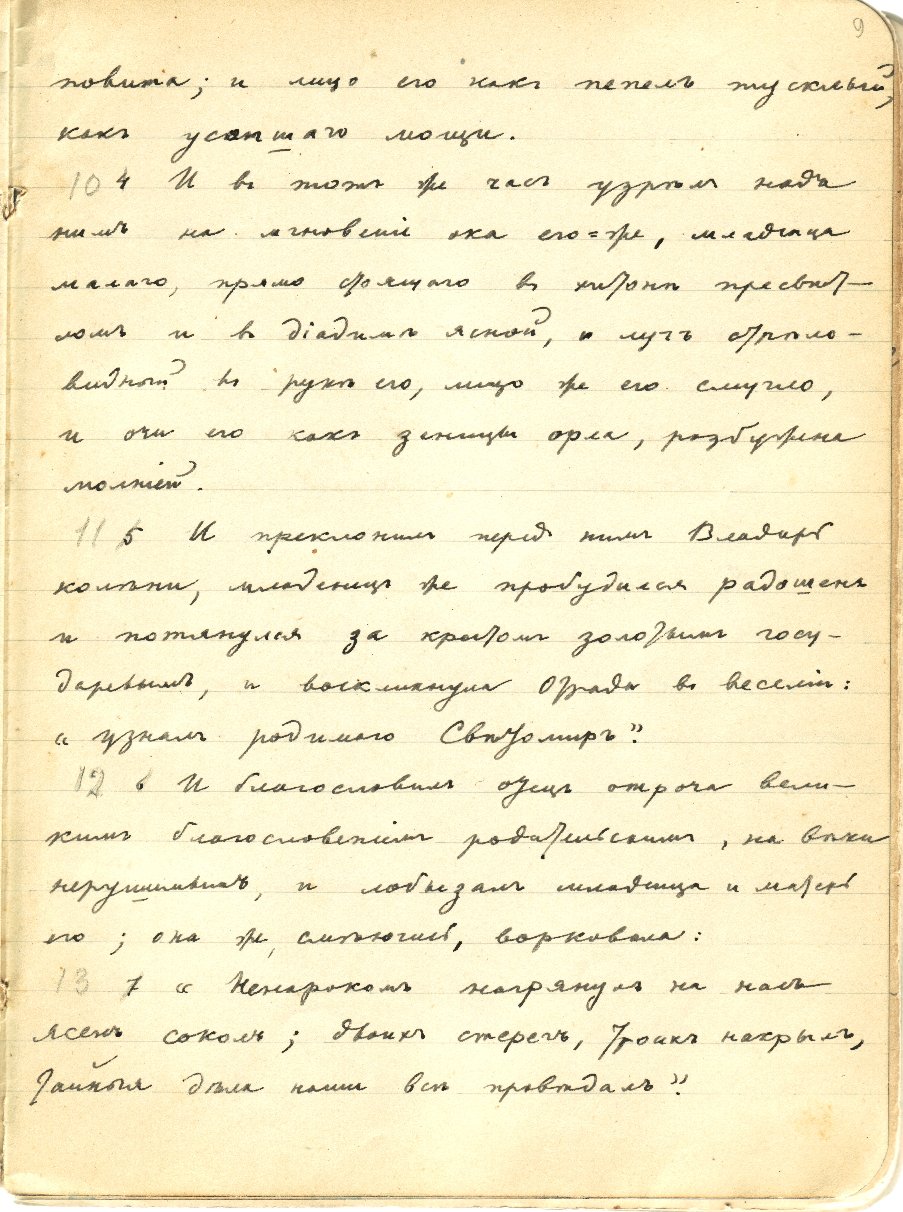 9
повита; и лицо его какъ пепелъ тусклый,
какъ усопшаго мощи.
10 4 И въ тотъ же часъ узрѣлъ надъ
нимъ на мгновеніе ока его=же, младенца
малаго, прямо стоящаго въ хитонѣ пресвѣт-
ломъ и въ діадимѣ ясной, и лучъ стрѣло-
видный въ рукѣ его, лицо же его смугло,
и очи его какъ зеницы орла, разбужена
молніей.
11 5 И преклонилъ передъ нимъ Владарь
колѣни, младенецъ же пробудился радошенъ
и потянулся за крестомъ золотымъ госу-
даревымъ, и воскликнула Отрада въ веселіи:
"узналъ родимаго Свѣтомиръ".
12 6 И благословилъ отецъ отроча вели-
кимъ благословеніемъ родительскимъ, на вѣки
нерушимымъ, и лобызалъ младенца и матерь
его; она же, смѣючись, ворковала:
13 7 "Ненарокомъ нагрянулъ на насъ
ясенъ соколъ; двоихъ стерегъ, троихъ накрылъ,
тайныя дѣла наши всѣ провѣдалъ".